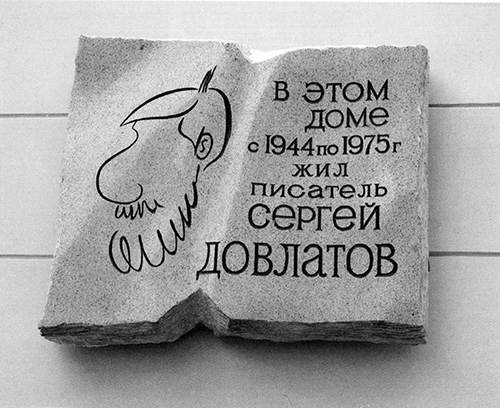 В ЭТОМ
ДОМЕ
с 1944 по 1975 г
ЖИЛ
ПИСАТЕЛЬ
СЕРГЕЙ
ДОВЛАТОВ